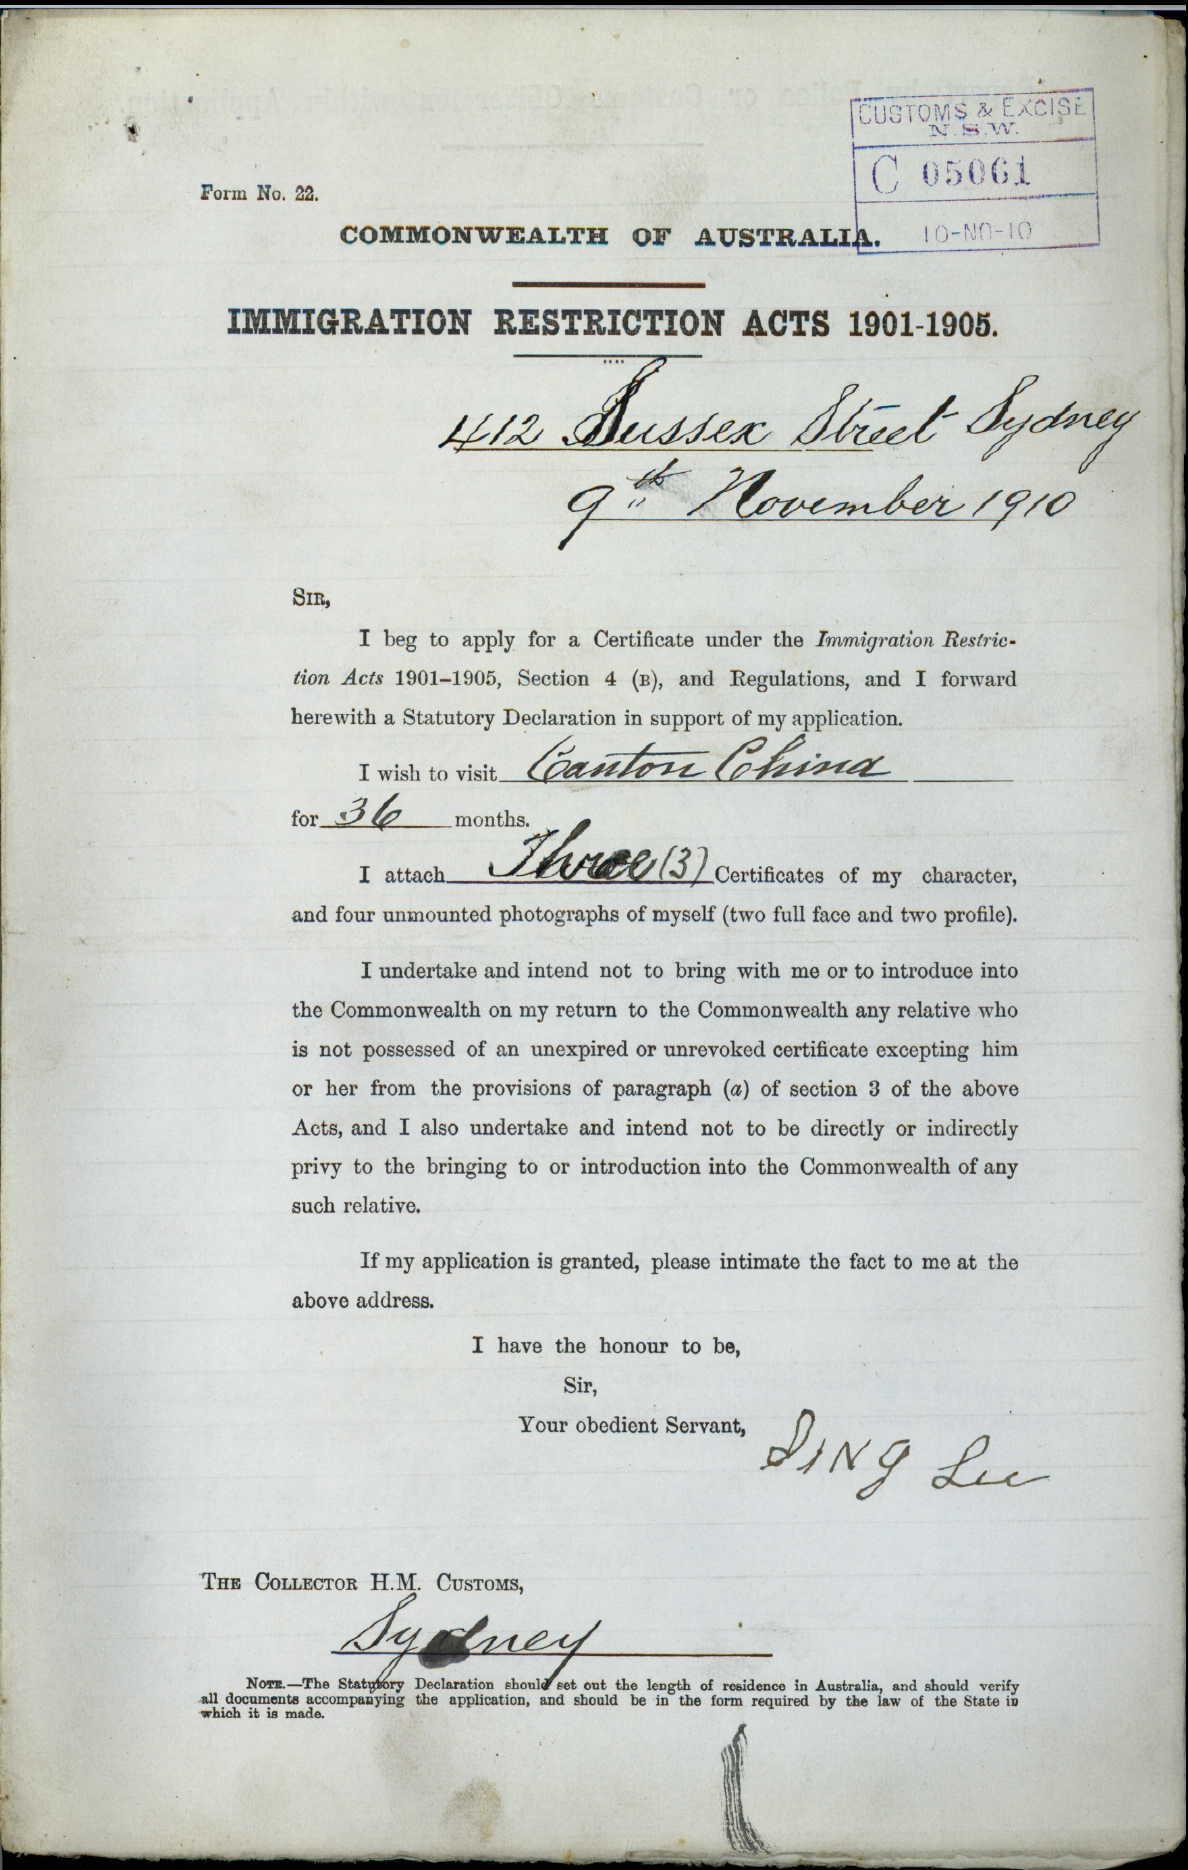 CUSTOMS & EXCISE
N.S.W.
C 05061
10-NO-10
Form No. 22.
COMMONWEALTH OF AUSTRALIA.
IMMIGRATION RESTRICTION ACTS 1901-1905.
412 Sussex Street Sydney
9th November 1910
SIR,
I beg to apply for a Certificate under the Immigration Restric-
tion Acts 1901–1905, Section 4 (B), and Regulations, and I forward
herewith a Statutory Declaration in support of my application.
I wish to visit Canton China
for 36 months.
I attach Three (3) Certificates of my character,
and four unmounted photographs of myself (two full face and two profile).
I undertake and intend not to bring with me or to introduce into
the Commonwealth on my return to the Commonwealth any relative who
is not possessed of an unexpired or unrevoked certificate excepting him
or her from the provisions of paragraph (a) of section 3 of the above
Acts, and I also undertake and intend not to be directly or indirectly
privy to the bringing to or introduction into the Commonwealth of any
such relative.
If my application is granted, please intimate the fact to me at the
above address.
I have the honour to be,
Sir,
Your obedient Servant,
SING Lee
THE COLLECTOR H.M. CUSTOMS,
Sydney
NOTE.—The Statutory Declaration should set out the length of residence in Australia, and should verify
all documents accompanying the application, and should be in the form required by the law of the State in
which it is made.